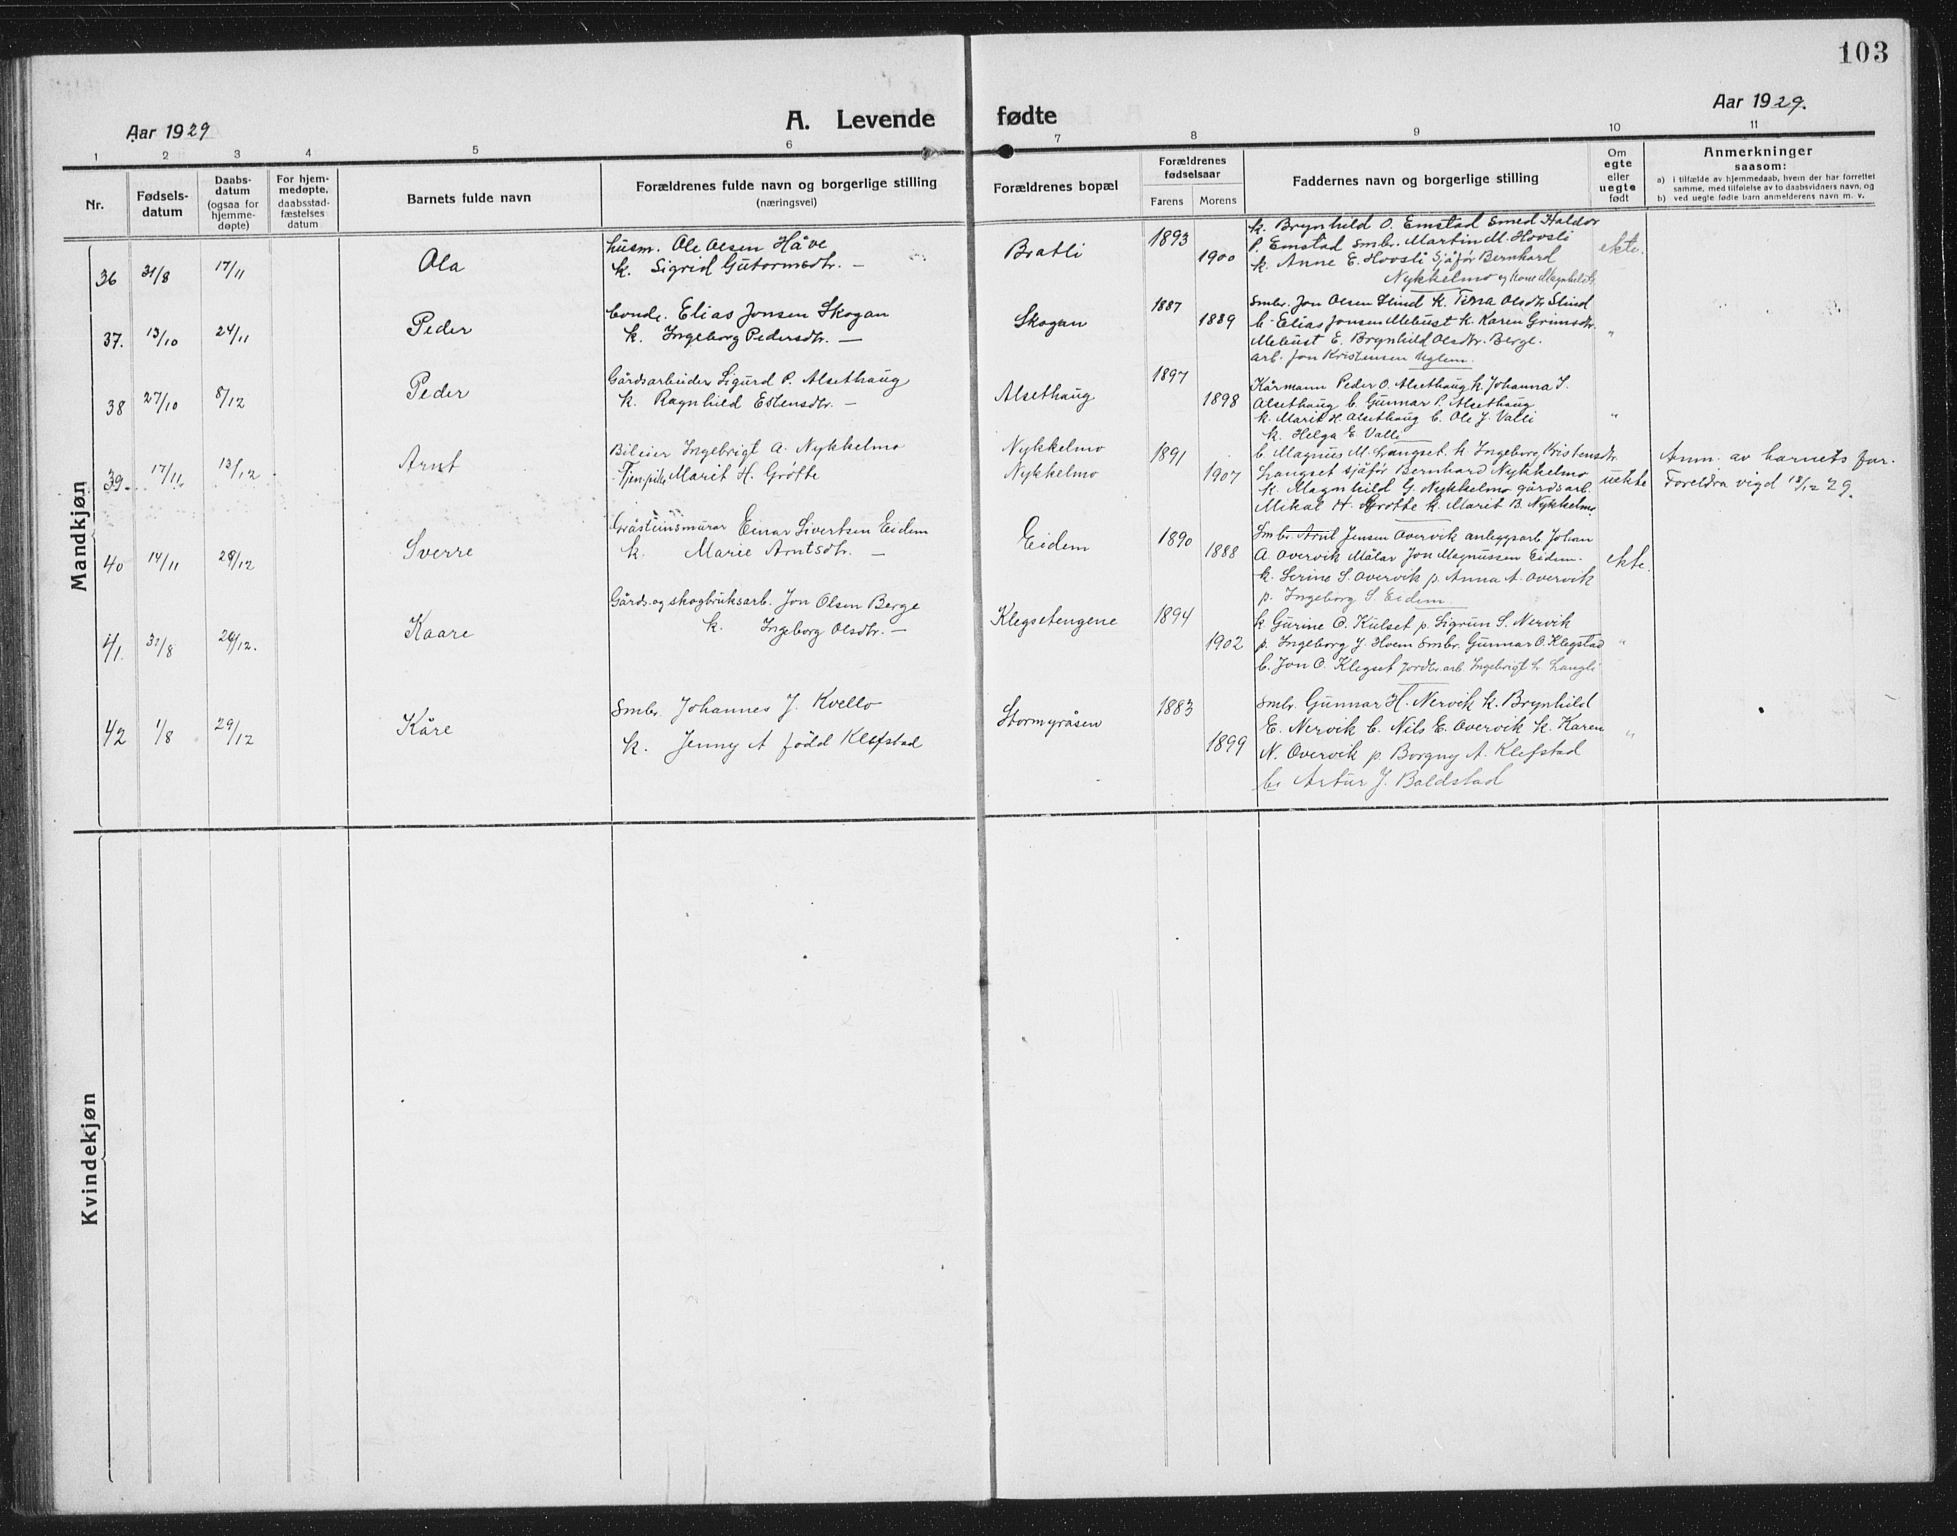 103
Aar 1929
A. Levende fødte
Aar 1929.
1 2 3 4 5 6 7 8 9 10 11
Nr.
Fødsels-
datum
Daabs-
datum
(ogsaa for
hjemme-
døpte)
For hjem-
medøpte,
daabsstad-
fæstelses
datum
Barnets fulde navn
Forældrenes fulde navn og borgerlige stilling
(næringsvei)
Forældrenes bopæl
Forældrenes
fødselsaar
Farens Morens
Faddernes navn og borgerlige stilling
Om
egte
eller
uegte
født
Anmerkninger
saasom:
a) i tilfælde av hjemmedaab, hvem der har forrettet
samme, med tilføielse av to daabsvidners navn, og
b) ved uegte fødte barn anmelderens navn m. v.
Mandkjøn
36 31/8 17/11 Ola
husm. Ole Olsen Håve
k. Sigrid Gutormsdtr. —
Bratli 1893 1900
k. Brynhild O. Emstad Smed Haldor
P. Emstad Smbr. Martin M. Hovsli
k. Anne E. Hovsli Sjåfør Bernhard
Nykkelmo og kone Magnhild
ekte.
37. 13/10 24/11 Peder
bonde. Elias Jonsen Skogan
k. Ingeborg Pedersdtr. —
Skogan 1887 1889
Smbr. Jon Olsen Slind k. Tina Olsdtr Slind
b. Elias Jonsen Mebust k. Karen Grimsdtr.
Mebust E. Brynhild Olsdtr. Berge.
arb. Jon Kristensen Uglem.
"
38 27/10 8/12 Peder
Gårdsarbeider Sigurd P. Alsethaug
k. Ragnhild Estensdtr. —
Alsethaug 1897 1898
Kårmann Peder O. Alsethaug k. Johanna J.
Alsethaug b. Gunnar P. Alsethaug
k. Marit H. Alsethaug b. Ole J. Valli
k. Helga E. Valli
"
39. 17/11 13/12 Arnt
Bileier Ingebrigt A. Nykkelmo
Tjen.pike Marit H. Grøtte
Nykkelmo
Nykkelmo
1891 1907
b. Magnus M. Langset k. Ingeborg Kristensdtr.
Langset sjåfør Bernhard Nykkelmo
k. Magnhild G. Nykkelmo gårdsarb.
Mikal H. Grøtte k. Marit B. Nykkelmo.
uekte
Anm. av barnets far.
Foreldra vigd 13/12 29.
40 14/11 28/12 Sverre
Gråsteinsmurar Einar Sivertsen Eidem
k. Marie Arntsdtr. —
Eidem 1890 1888
Smbr. Arnt Jensen Overvik anleggsarb. Johan
A. Overvik Målar Jon Magnussen Eidem.
k. Serine S. Overvik p. Anna A. Overvik
p. Ingeborg S. Eidem.
ekte.
41. 31/8 26/12. Kaare
Gårds og skogbruksarb. Jon Olsen Berge
k. Ingeborg Olsdtr. —
Klegsetengene 1894 1902
k Gurine O. Kulset p. Sigrun S. Nervik
p. Ingeborg J. Hoem Smbr. Gunnar O. Klegstad
b. Jon O. Klegset jordbr.arb Ingebrigt L. Langli
"
42 1/8 29/12 Kåre
Smbr. Johannes J. Kvello
k. Jenny A. fødd Klefstad
Stormyråsen 1883 1899
Smbr. Gunnar H. Nervik k. Brynhild
E. Nervik b. Nils E. Overvik k. Karen
N. Overvik p. Borgny A. Klefstad
b. Artur J. Baldstad
"
Kvindekjøn